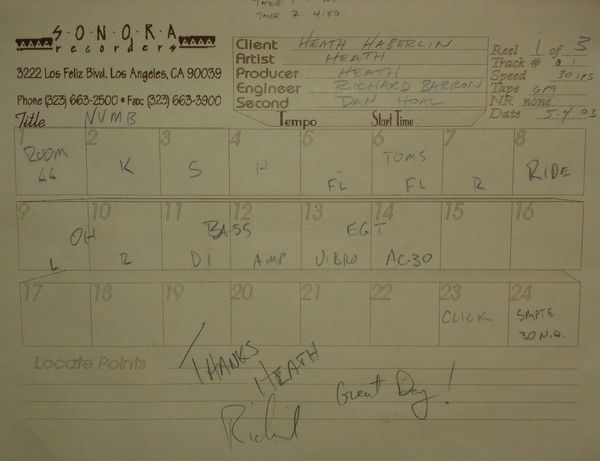 TAKE 2 4:54
SONORA
recorders
3222 Los Feliz Blvd. Los Angeles, CA 90039
Phone (323) 663-2500 • Fax: (323) 663-3900
Client HEATH HABERLIN
Artist HEATH
Producer HEATH
Engineer RICHARD BARRON
Second DAN HOAL
Reel 1 of 3
Track # 01
Speed 30 IPS
Tape GP9
NR none
Date 5.4.03
Title NUMB
Tempo Start Time
1 2 3 4 5 6 7 8
ROOM TOMS
44 K S H FL FL R RIDE
9 10 11 12 13 14 15 16
OH BASS EGT
L R DI AMP VIBRO AC-30
17 18 19 20 21 22 23 24
CLICK SMPTE
30 N.D.
Locate Points
THANKS
HEATH
Great Day!
Richard